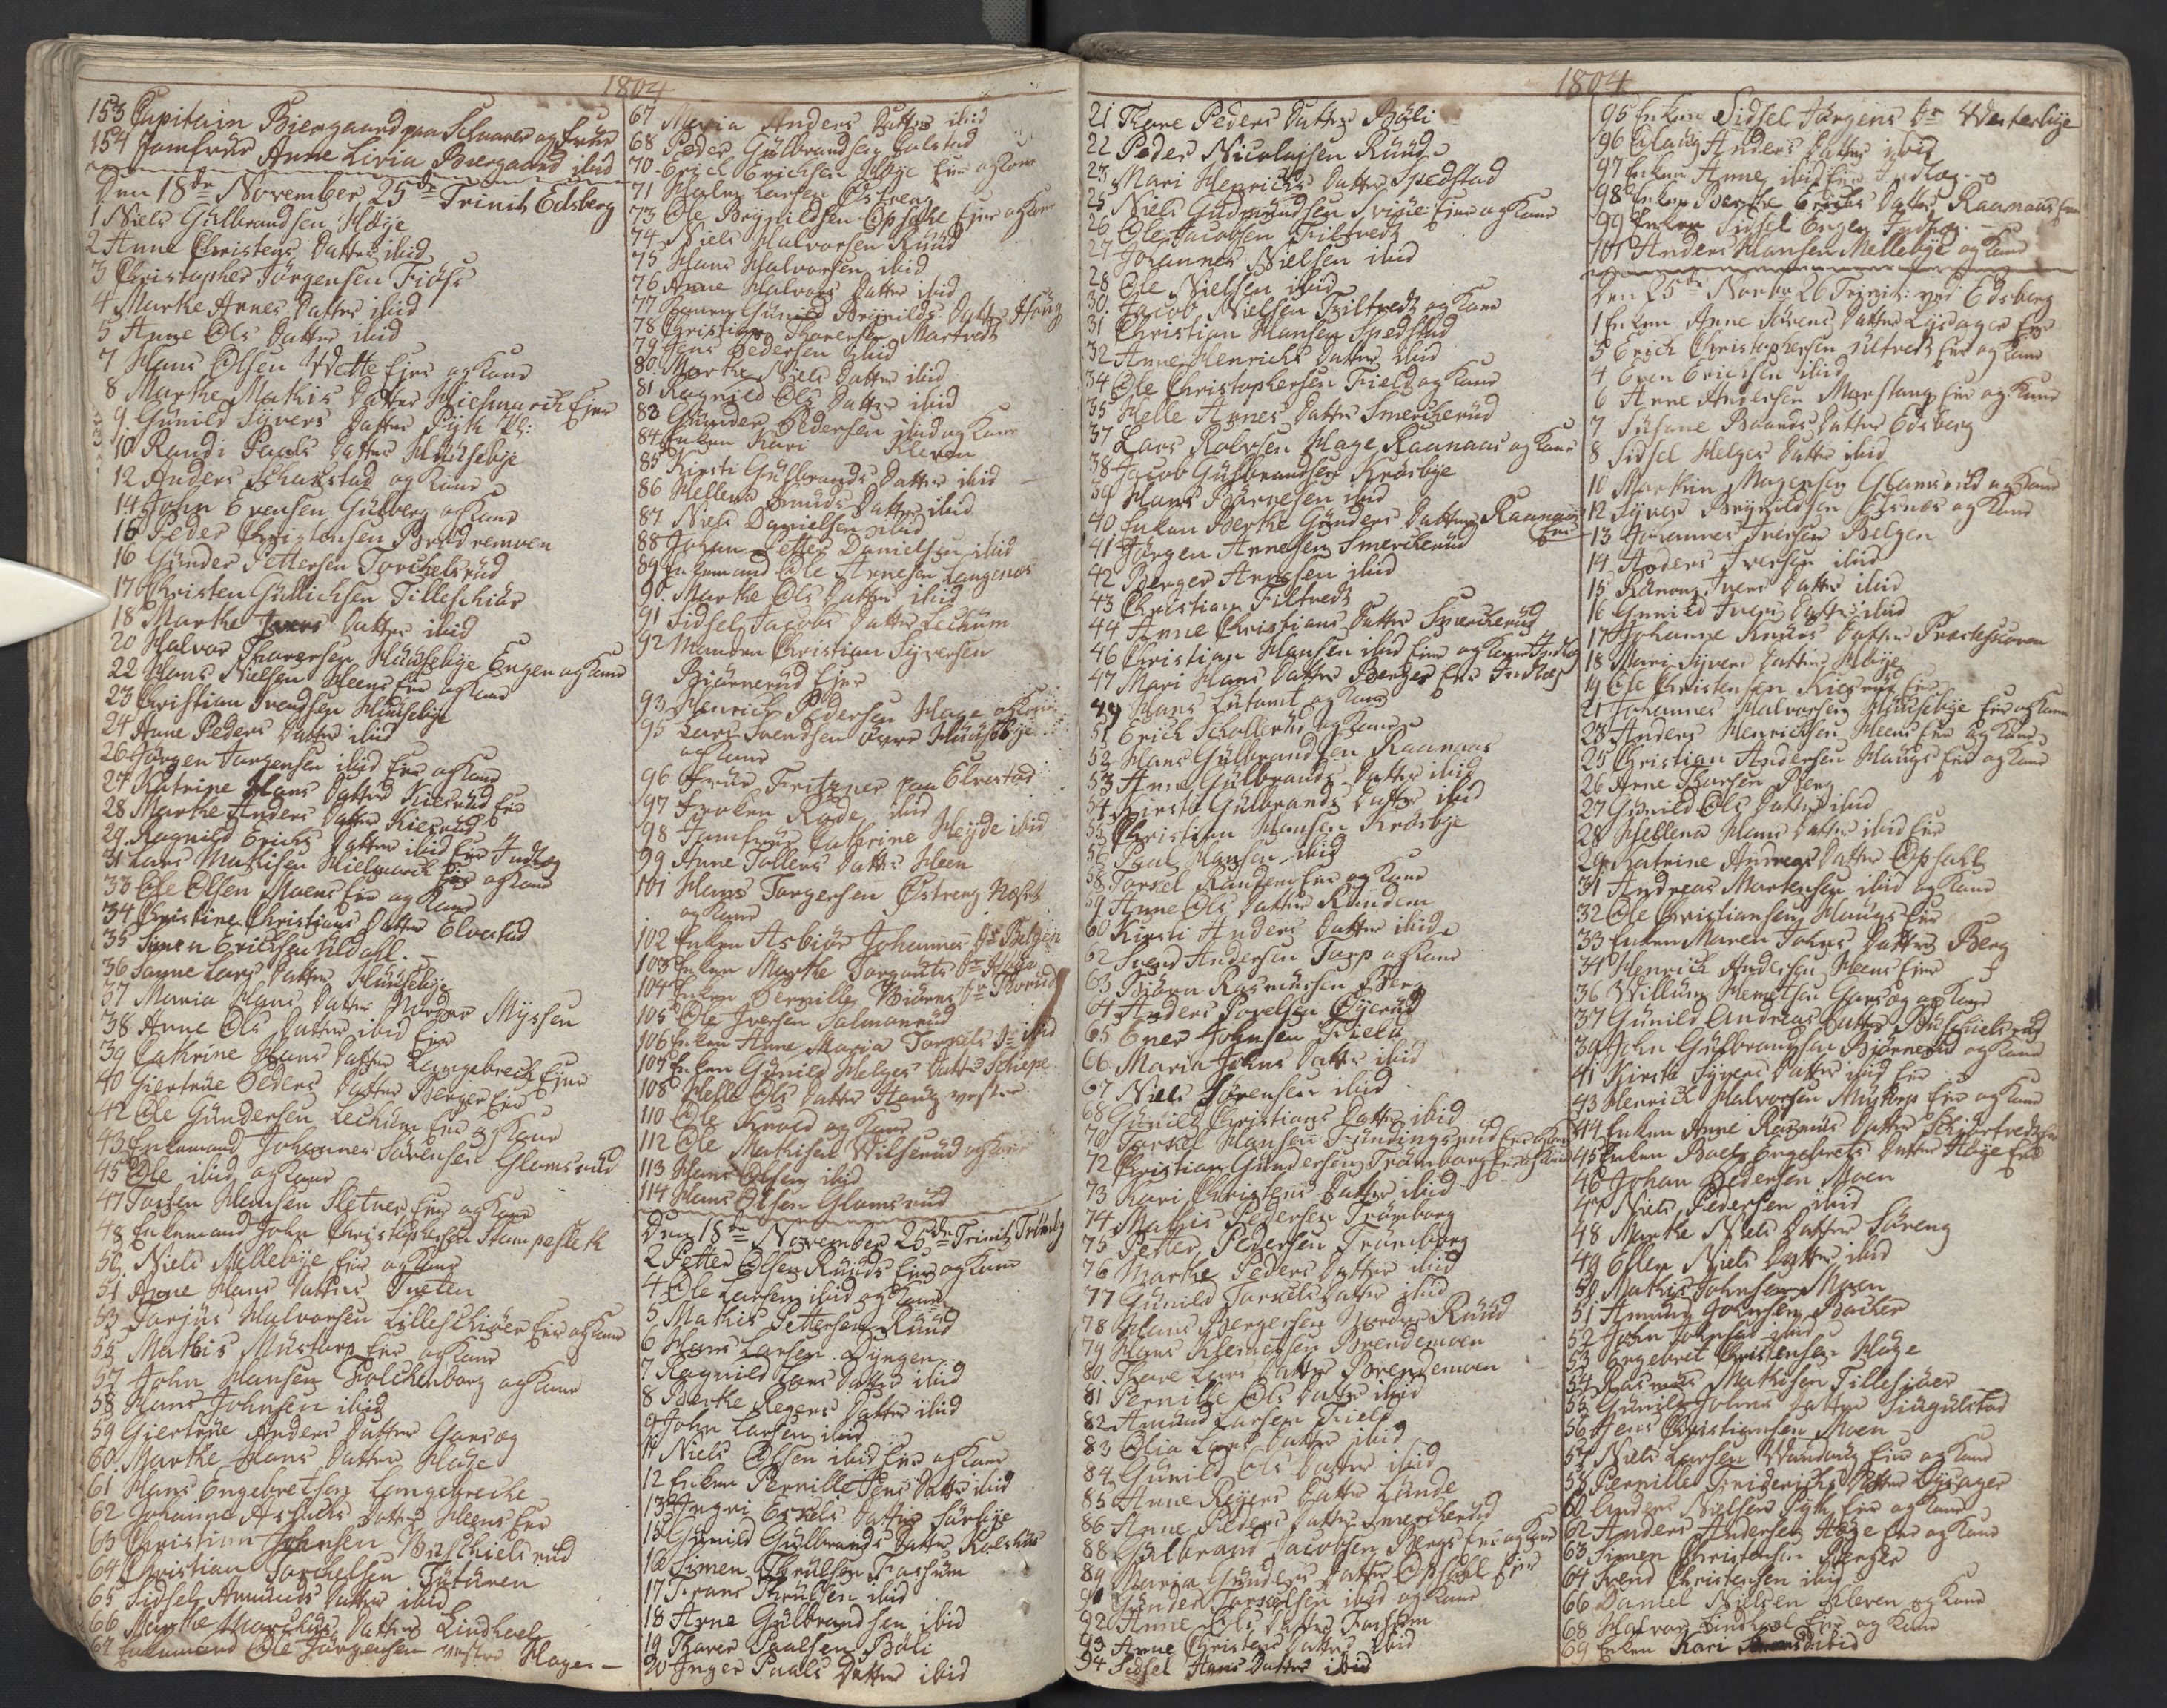 1804
153 Capitain Biergaard paa Schaarer og Frue
154 Jomfrue Anne Livia Biergaard ibid
Den 18de November 25de Trinit Edsberg
1 Niels Gulbrandsen Høye
2 Anne Christens Datter ibid
3 Christopher Jørgensen Fiøss
4 Marthe Arnes Datter ibid
5 Anne Ols Datter ibid
7 Hans Olsen Wette Eier og Kone
8 Marthe Mathis Datter Hielmarck Eier
9 Gunild Syvers Datter
10 Randi Paals Datter Huusebye
12 Anders Schakstad og Kone
14 John Evensen Gulberg og Kone
15 Peder Christensen Brendemoen
16 Gunder Pettersen Torchelsrud
17 Christen Gullichsen Tilleschiør
18 Marthe Ivers Datter ibid
20 Halvor Thoresen Huusebye Engen og Kone
22 Hans Nielsen Heens Eier og Kone
23 Christian Svendsen Huusebye
24 Anne Peders Datter ibid
26 Jørgen Jørgensen ibid Eier og Kone
27 Katrine Hans Datter Kiesrud Eier
28 Marthe Anders Datter Kiesrud
29 Ragnild Erichs Datter ibid Eier Indlæg
31 Lars Mathisen Hielmarck Eier og Kone
33 Ole Olsen Moens Eier og Kone
34 Christine Christians Datter Elvestad
35 Simen Erichsen Uldahl
36 Sanne Lars Datter Huusebye
37 Maria Hans Datter Nordre Myssen
38 Anne Ols Datter ibid Eier
39 Cathrine Hans Datter Langebrech Eier
40 Giertrue Peders Datter Berger Eier
42 Ole Gundersen Lechum Eier og Kone
43 Enkemand Johannes Sørensen Glomsrud
45 Ole ibid og Kone
47 Torsten Hansen Sletner Eier og Kone
48 Enkemand John Christophersen Stampesleth
50 Niels Mellebye Eier og Kone
51 Anne Hans Datter Tveten
53 Torjus Halvorsen Lilleschiør Eier og Kone
55 Mathis Mustorp Eier og Kone
57 John Hansen Folchenborg og Kone
58 Hans Johnsen ibid
59 Giertrue Anders Datter Garseg
60 Marthe Hans Datter Høye
61 Hans Engebretsen Langebreche
62 Johanne Aslachs Datter Heens Eier
63 Christian Johnsen Buschielsrud
64 Christian Torchelsen Tuturen
65 Sidsel Amunds Datter ibid
66 Marthe Marchus Datter Lindhoel
67 Enkemand Ole Jørgensen vestre Hager
67 Maria Anders Datter ibid
68 Peder Gulbrandsen Golstad
70 Erich Erichsen Høye Eier og Kone
71 Halvor Larsen Østreng
73 Ole Brynildsen Opsahe Eier og Kone
74 Niels Halvorsen Ruud
75 Hans Halvorsen ibid
76 Anne Halvors Datter ibid
77 Gunild Brynilds Datter Haug
78 Christian Thoresen Martvedt
79 Jens Pedersen ibid
80 Marthe Niels Datter ibid
81 Ragnild Ols Datter ibid
83 Gunder Pedersen ibid og Kone
84 Enken Kari Kleven
85 Kirsti Gulbrands Datter ibid
86 Hellena Knuds Datter ibid
87 Niels Danielsen ibid
88 Johan Petter Danielsen ibid
89 Enkemand Ole Arnesen Langenæs
90 Marthe Ols Datter ibid
91 Sidsel Jacobs Datter Lechum
92 Manden Christian Syversen
Biørnerud Eier
93 Henrich Pedersen Hage og Kone
95 Lars Svendsen øvre Huusebye
og Kone
96 Frue Fritzner paa Elvestad
97 Frøken Rode ibid
98 Jomfrue Cathrine Heyde ibid
99 Anne Tollers Datter Heen
101 Hans Torgersen Østreng Næset
og Kone
102 Enken Asbiør Johannes Dr Belgen
103 Enken Marthe Torgauts Dr Høye
104 Enken Pernille Biørns Dr Thorud
105 Ole Iversen Salmonrud
106 Enken Anne Maria Torgels Dr ibid
107 Enken Gunild Helges Datter Schiepe
108 Helle Ols Datter Haug vestre
110 Ole Knold og Kone
112 Ole Mathisen Wilserud og Kone
113 Hans Olsen ibid
114 Hans Olsen Glomsrud
Den 18de November 25de Trinit Trømborg
2 Petter Olsen Ruuds Eier og Kone
4 Ole Larsen ibid og Kone
5 Mathis Pettersen Ruud
6 Hans Larsen Dyngen
7 Ragnild Lars Datter ibid
8 Berthe Regers Datter ibid
9 John Larsen ibid
11 Niels Olsen ibid Eier og Kone
12 Enken Pernille Jens Datter ibid
13 Ingri Eskels Datter Sørbye
15 Gunild Gulbrands Datter Kolshus
16 Simen Thrulsen Fossum
17 Frans Thrulsen ibid
18 Arne Gulbrandsen ibid
19 Thore Paalsen Bøli
20 Inger Paals Datter ibid
1804
21 Thore Peders Datter Bøli
22 Peder Nicolajsen Ruud
23 Mari Henrichs Datter Spedstad
25 Niels Gudmundsen Svine Eier og Kone
26 Ole Jacobsen Filtvedt
27 Johannes Nielsen ibid
28 Ole Nielsen ibid
30 Jacob Nielsen Filtvedt og Kone
31 Christian Hansen Spedstad
32 Anne Henrichs Datter ibid
34 Ole Christophersen Field og Kone
35 Helle Arnes Datter Smercherud
37 Lars Rolvsen Hage Raanaas og Kone
38 Jacob Gulbrandsen Krosbye
39 Hans Børresen ibid
40 Enken Berthe Gunders Datter Raanaas
Eier
41 Jørgen Arnesen Smercherud
42 Berger Arnesen ibid
43 Christian Filtvedt
44 Anne Christians Datter Smercherud
46 Christian Hansen ibid Eier og Kone Indlæg
47 Mari Hans Datter Berger Eier Indlæg
49 Hans Lutomt og Kone
51 Erich Schollerud og Kone
52 Hans Gulbrandsen Raanaas
53 Anne Gulbrands Datter ibid
54 Kirsti Gulbrands Datter ibid
55 Christian Hansen Krosbye
56 Poul Hansen ibid
58 Torkel Randem Eier og Kone
59 Anne Ols Datter Randem
60 Kirsti Anders Datter ibid
62 Svend Andersen Torp og Kone
63 Biørn Rasmussen Berg
64 Anders Povelsen Øyerud
65 Ener Johnsen Field
66 Maria Johns Datter ibid
67 Niels Sørensen ibid
68 Gunild Christians Datter ibid
70 Torkel Hansen Grundingsrud Eier og Kone
72 Christian Gundersen Trømborg Eier og Kone
73 Kari Christens Datter ibid
74 Mathis Pedersen Trømborg
75 Petter Pedersen Trømborg
76 Marthe Peders Datter ibid
77 Gunild Torkels Datter ibid
78 Hans Bergersen Nordre Ruud
79 Hans Clemetsen Brendemoen
80 Thore Lars Datter Brendemoen
81 Pernille Ols Datter ibid
82 Amund Larsen Field
83 Olia Lars Datter ibid
84 Gunild Ols Datter ibid
85 Anne Reyers Datter Lunde
86 Anne Peders Datter Smercherud
88 Gulbrand Jacobsen Bergs Eier og Kone
89 Maria Gunders Datter Opsahl Eier
91 Gunder Torkelsen ibid og Kone
92 Anne Ols Datter Fossum
93 Anne Christens Datter ibid
94 Sidsel Hans Datter ibid
95 Enken Sidsel Jørgens Dr Westerbye
96 Olaug Anders Datter ibid
97 Enken Anne ibid Eier Indlæg
98 Enken Berthe Erichs Datter Raanaas Eier
99 Enken Sidsel Engen Indlæg
101 Anders Hansen Mellebye og Kone
Den 25de Novbr 26 Trinit: ved Edsberg
1 Enken Anne Sørens Datter Lysager Eier
3 Erich Christophersen Ultvedt Eier og Kone
4 Even Erichsen ibid
6 Arne Andersen Morstang Eier og Kone
7 Susane Baards Datter Edsberg
8 Sidsel Helges Datter ibid
10 Marthin Mogensen Glomsrud og Kone
12 Syver Brynildsen Elsnæs og Kone
13 Johannes Iversen Belgen
14 Anders Iversen ibid
15 Rønnou Ivers Datter ibid
16 Gunild Ivers Datter ibid
17 Johanne Knuds Datter Prestegaarden
18 Mari Syvers Datter Høye
19 Ole Christensen Kiesrud Eier
21 Johannes Halvorsen Huusebye Eier og Kone
23 Anders Henrichsen Heens Eier og Kone
25 Christian Andersen Haugs Eier og Kone
26 Arne Thorsen Berg
27 Gunild Ols Datter ibid
28 Hellena Hans Datter ibid Eier
29 Katrine Andreas Datter Opsahl
31 Andreas Mortensen ibid og Kone
32 Ole Christiansen Haugs Eier
33 Enken Maren Johns Datter Berg
34 Henrich Andersen Heens Eier
36 Willum Hemetsen Garseg og Kone
37 Gunild Andreas Datter Buschielsrud
39 John Gulbrandsen Biørnerud og Kone
41 Kirsti Syvers Datter ibid Eier
43 Henrich Halvorsen Mustorp Eier og Kone
44 Enken Anne Rasmus Datter Schiørtvedt Eier
45 Enken Boel Engebrets Datter Høye Eier
46 Johan Pedersen Moen
47 Niels Pedersen ibid
48 Marthe Niels Datter Søreng
49 Ellen Niels Datter ibid
50 Mathis Johnsen Moen
51 Amund Johnsen Bacher
52 John Johnsen ibid
53 Engebret Christensen Høye
54 Rasmus Mathisen Tillesiøer
55 Gunild Johns Datter Singulstad
56 Jens Christiansen Moen
57 Niels Larsen Wandaug Eier og Kone
58 Pernille Friderichs Datter Lysager
60 Anders Nielsen Eier og Kone
62 Anders Andersen Høye Eier og Kone
63 Simen Christensen Berger
64 Svend Christensen ibid
66 Daniel Nielsen Kleven og Kone
68 Halvor Lindhoel Eier og Kone
69 Enken Kari ibid